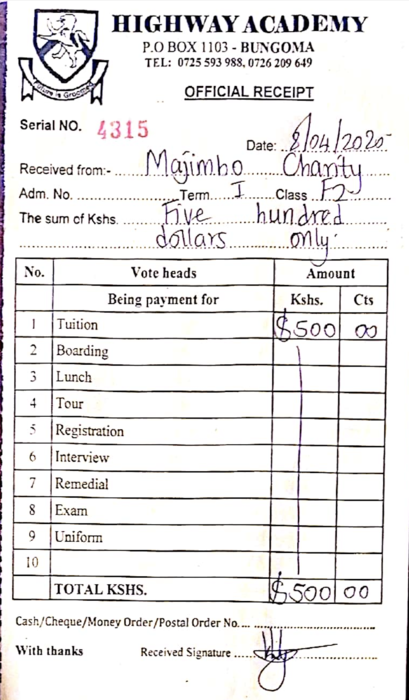 HIGHWAY ACADEMY
P.O BOX 1103 - BUNGOMA
TEL: 0725 593 988, 0726 209 649
Future is Groomed
OFFICIAL RECEIPT
Serial NO. 4315
Date: 8/04/2020
Received from:- Majimbo Charity
Adm. No. Term I Class F2
The sum of Kshs. Five hundred
dollars only.
No. Vote heads Amount
Being payment for Kshs. Cts
1 Tuition $500 00
2 Boarding
3 Lunch
4 Tour
5 Registration
6 Interview
7 Remedial
8 Exam
9 Uniform
10
TOTAL KSHS. $500 00
Cash/Cheque/Money Order/Postal Order No.
With thanks Received Signature